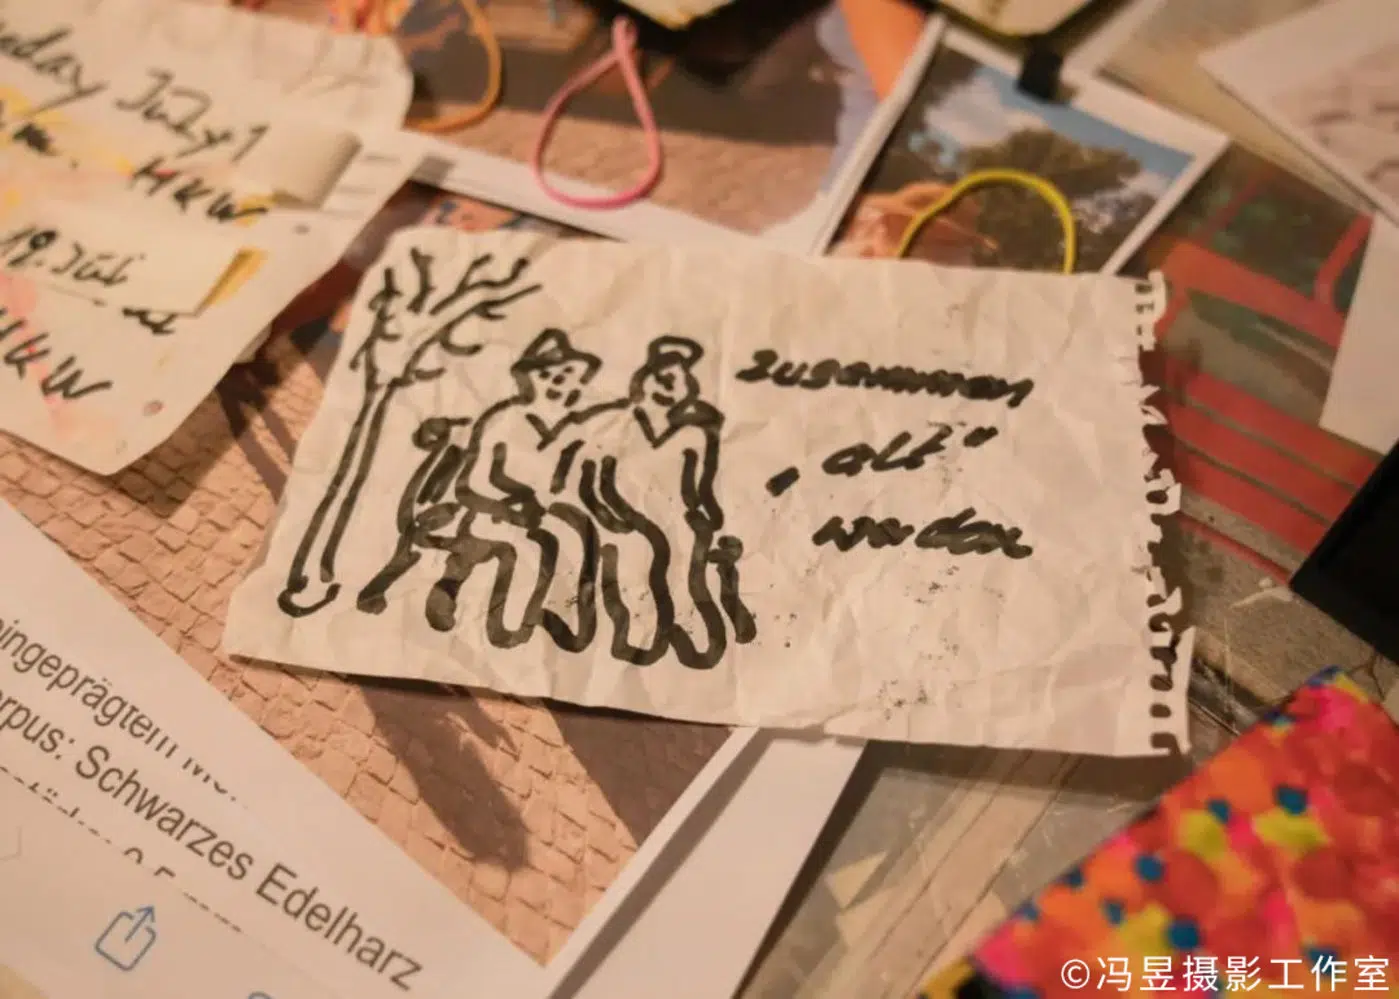 day July 1
m. HKW
19. Juli
HKW
zusammen
„alt"
werden
eingeprägtem
rpus: Schwarzes Edelharz
©冯昱摄影工作室